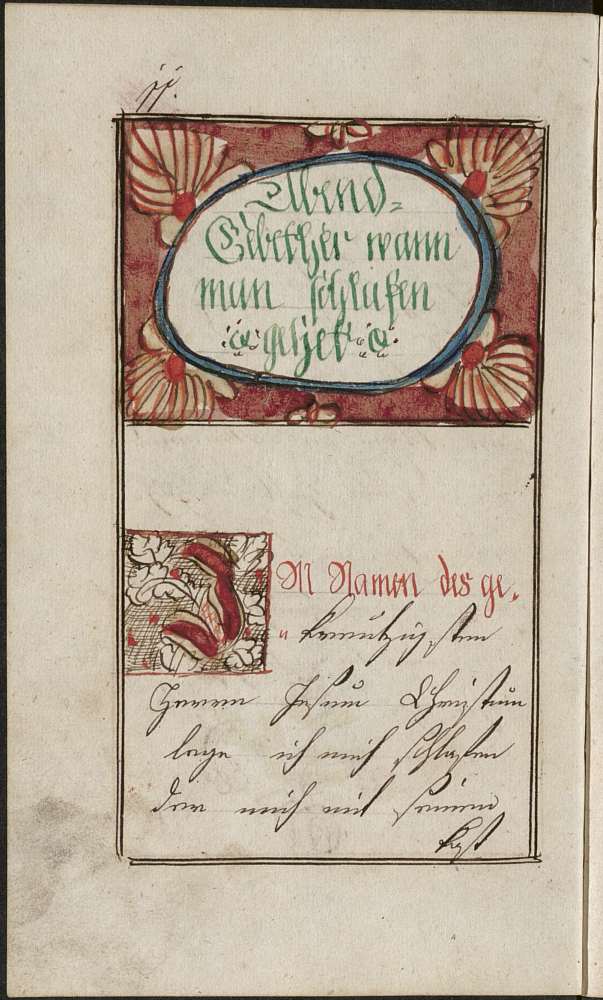 Abend-
Gebether wann
man schlafen
gehet
IM Namen des ge-
kreutzigsten
Herren Jesum Christum
lege ich mich schlafen
der mich mit seinem